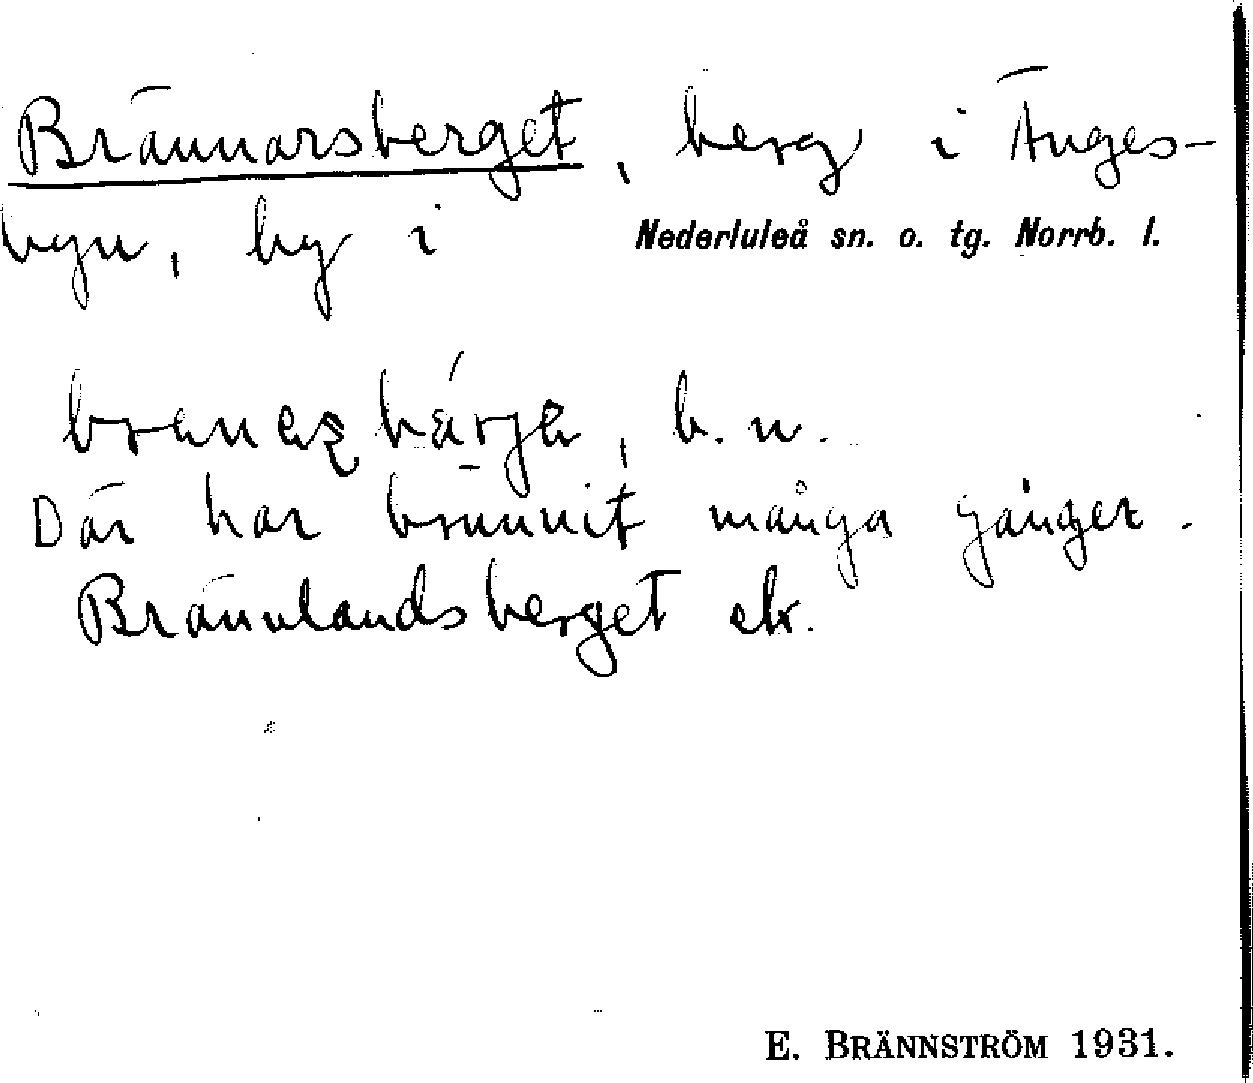 Brännarsberget, berg i Änges-
byn, by i Nederluleå sn. o. tg. Norrb. l.
b. n.
Där har brunnit många gånger.
Brännlandsberget ek.
E. BRÄNNSTRÖM 1931.